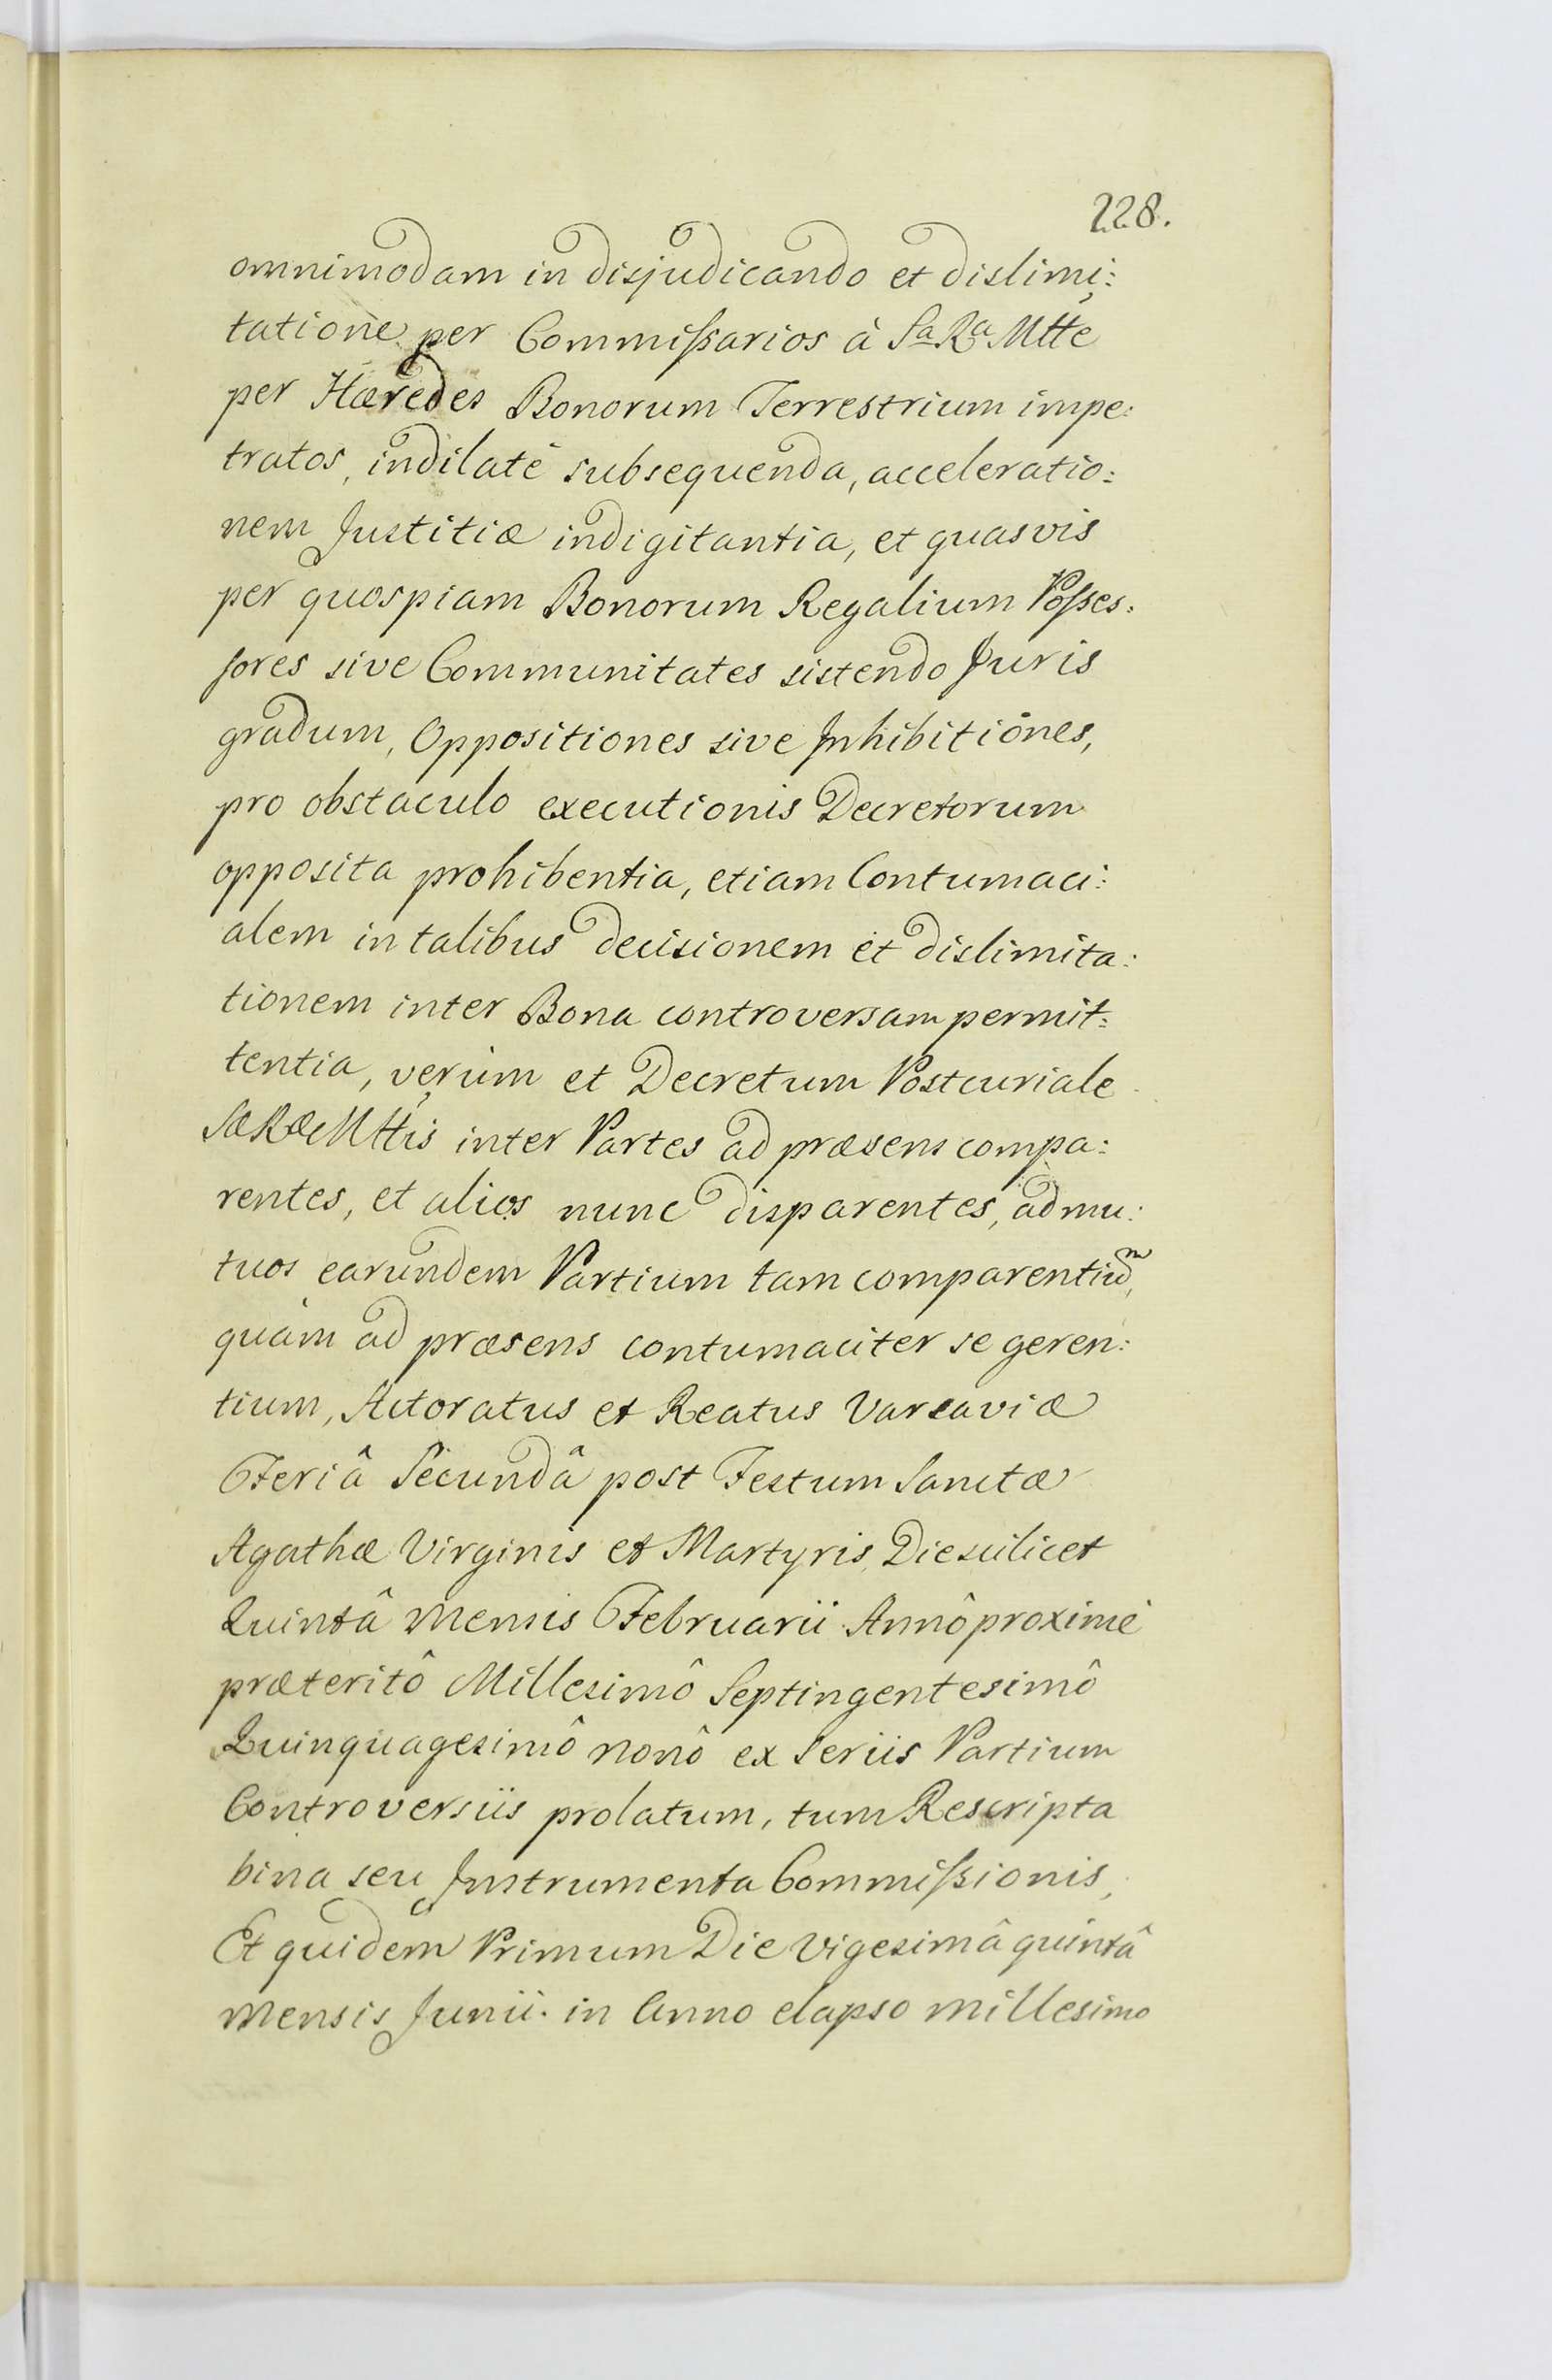 228.
omnimodam in disjudicando et dislimi:
tatione per Commissarios à Sa Ra Mtte
per Hæredes Bonorum Terrestrium impe:
tratos, indilatè subsequenda, acceleratio:
nem Justitiæ indigitantia, et quasvis
per quospiam Bonorum Regalium Posses:
sores sive Communitates sistendo Juris
gradum, Oppositiones sive Inhibitiones,
pro obstaculo executionis Decretorum
opposita prohibentia, etiam Contumaci:
alem in talibus decisionem et dislimita:
tionem inter Bona controversam permit:
tentia, verùm et Decretum Postcuriale
SæRæMttis inter Partes ad præsens compa:
rentes, et alios nunc disparentes, ad mu:
tuos earundem Partium tam comparentium,
quàm ad præsens contumaciter se geren:
tium, Actoratus et Reatus Varsaviæ
Feriâ Secundâ post Festum Sanctæ
Agathæ Virginis et Martyris, Die scilicet
Quintâ Mensis Februarii Annô proximè
præteritô Millesimô Septingentesimô
Quinquagesimô nonô ex Seriis Partium
Controversiis prolatum, tum Rescripta
bina seu Instrumenta Commissionis,
Et quidem Primum Die Vigesimâ quintâ
Mensis Junii in Anno elapso millesimo